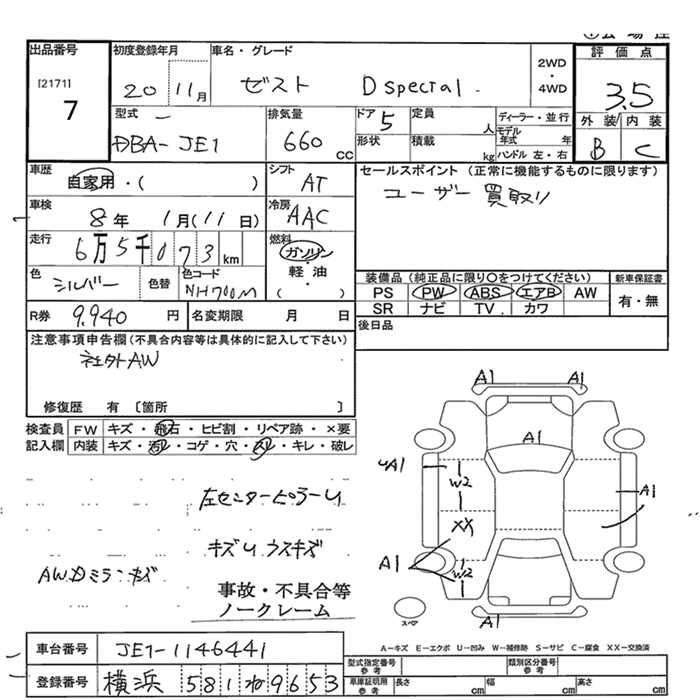 出品番号
[2171]
7
初度登録年月
20 11月
車名・グレード
ゼスト D special
2WD
・
4WD
評価点
3.5
外装 内装
B C
型式
DBA-JE1
排気量
660 cc
ドア 5
形状
定員
人
積載
kg
ディーラー・並行
モデル年式 年
ハンドル 左・右
車歴
自家用・( )
シフト
AT
セールスポイント (正常に機能するものに限ります)
ユーザー買取り
車検
8年 1月(11日)
冷房
AAC
走行
6万5千073km
燃料
ガソリン
軽・油
( )
色
シルバー
色替
色コード
NH700M
装備品 (純正品に限り○をつけてください)
PS PW ABS エアB AW
SR ナビ TV カワ
新車保証書
有・無
R券 9,940円
名変期限 月 日
後日品
注意事項申告欄(不具合内容等は具体的に記入して下さい)
社外AW
修復歴 有 〔箇所 〕
検査員記入欄
FW キズ・飛石・ヒビ割・リペア跡・×要
内装 キズ・汚レ・コゲ・穴・スレ・キレ・破レ
A1 A1
A1
A1
W2
A1
XX
A1
W2
A1
スペア
左センターピラーU
キズU ウスキズ
AWDミラーキズ
事故・不具合等
ノークレーム
A-キズ E-エクボ U-凹み W-補修跡 S-サビ C-腐食 XX-交換済
車台番号 JE1-1146441
登録番号 横浜 581 わ 9653
型式指定番号
参考
類別区分番号
参考
車庫証明用
参考
長さ cm
幅 cm
高さ cm